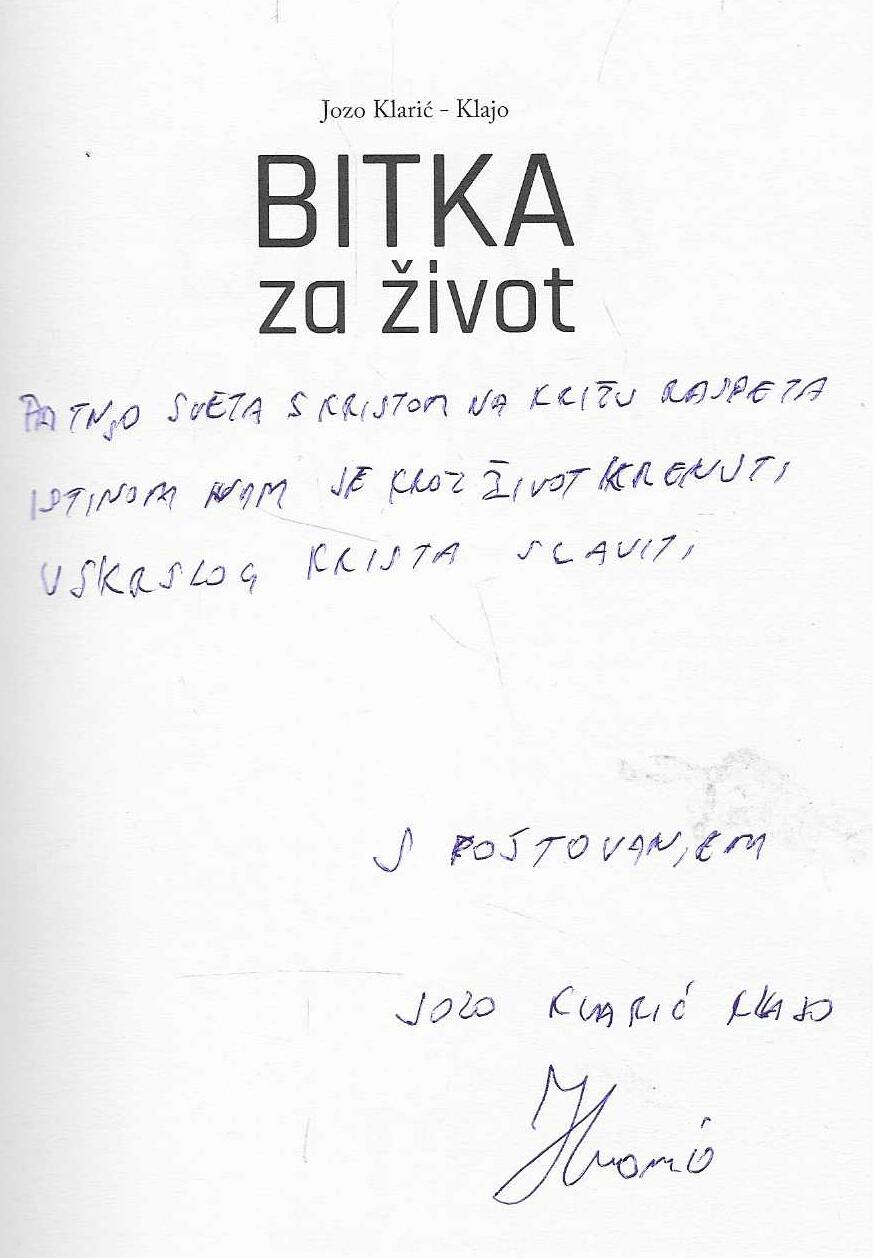 Jozo Klarić - Klajo
BITKA
za život
PATNJO SVETA S KRISTOM NA KRIŽU RASPETA
ISTINOM NAM JE KROZ ŽIVOT KRENUTI
USKRSLOG KRISTA SLAVITI
S POŠTOVANJEM
JOZO KLARIĆ KLAJO